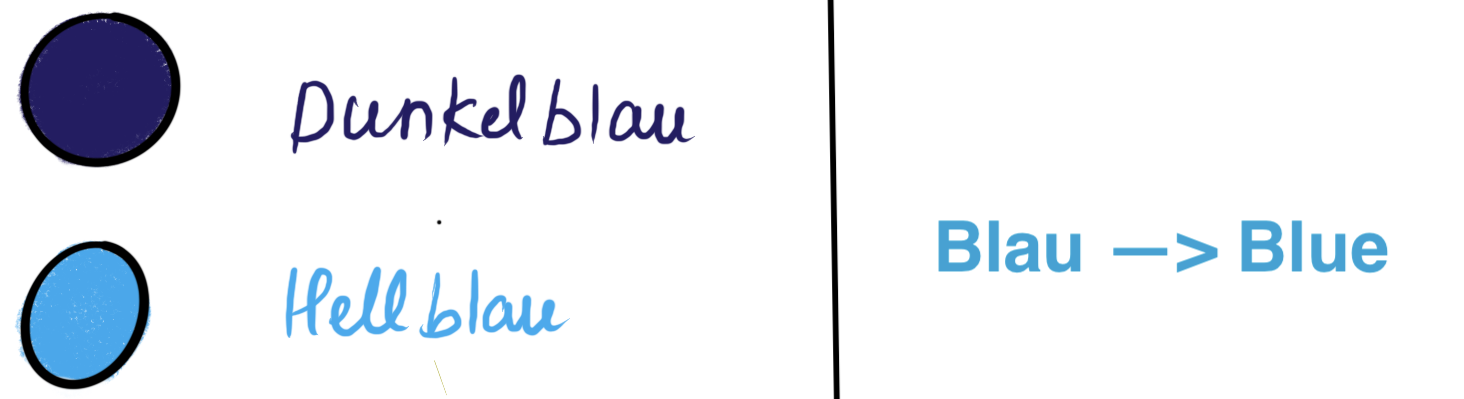 Dunkelblau
Hellblau
Blau —> Blue